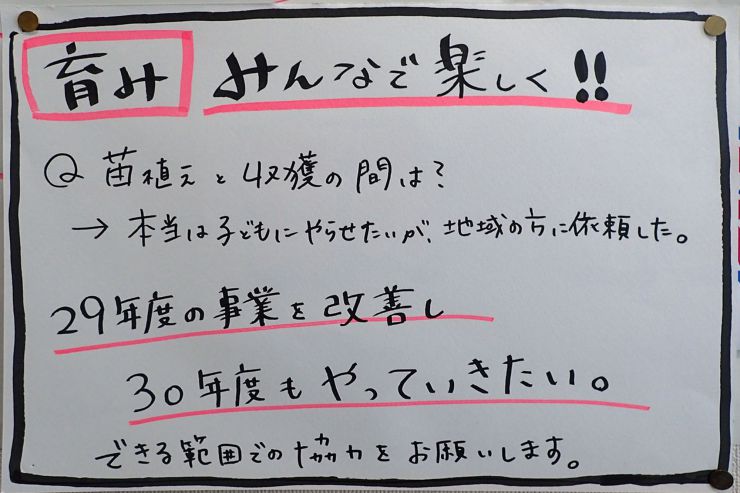 育み みんなで楽しく!!
Q 苗植えと収獲の間は?
→ 本当は子どもにやらせたいが、地域の方に依頼した。
29年度の事業を改善し
30年度もやっていきたい。
できる範囲での協力をお願いします。